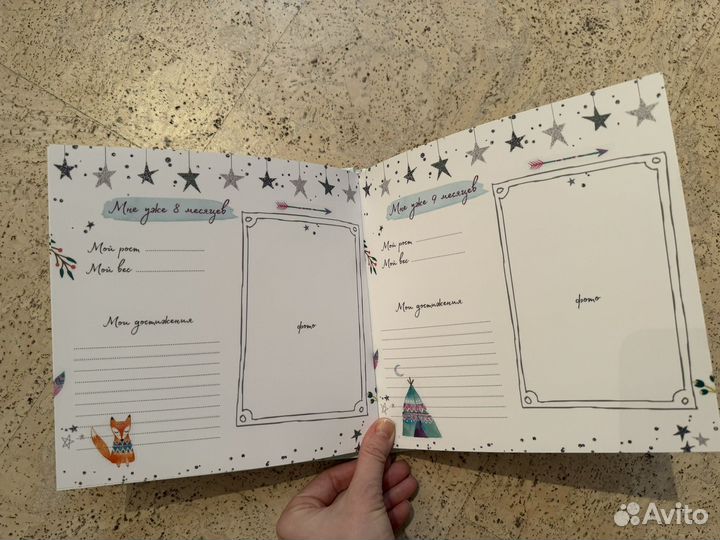 Мне уже 8 месяцев
Мой рост
Мой вес
Мои достижения
фото
Мне уже 9 месяцев
Мой рост
Мой вес
Мои достижения
фото
Avito